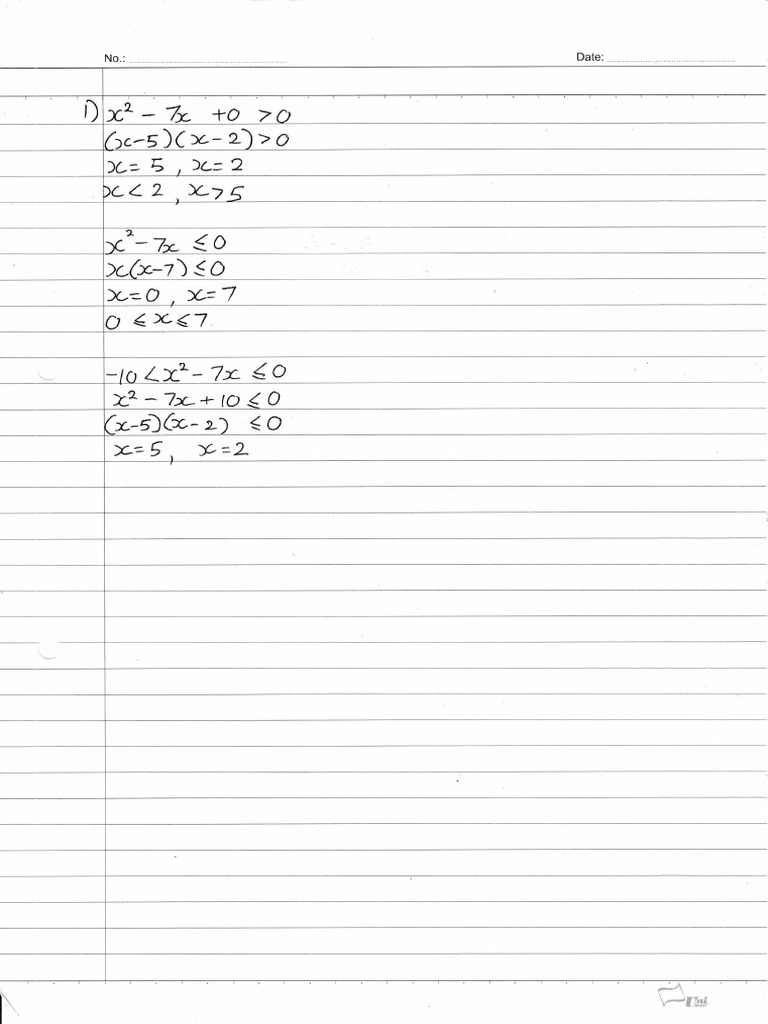 No.:
Date:
1) x² - 7x +0 > 0
(x-5)(x-2)>0
x = 5 , x = 2
x < 2 , x > 5
x² - 7x ≤ 0
x(x-7) ≤ 0
x = 0 , x = 7
0 ≤ x ≤ 7
-10 < x² - 7x ≤ 0
x² - 7x + 10 ≤ 0
(x-5)(x-2) ≤ 0
x = 5 , x = 2